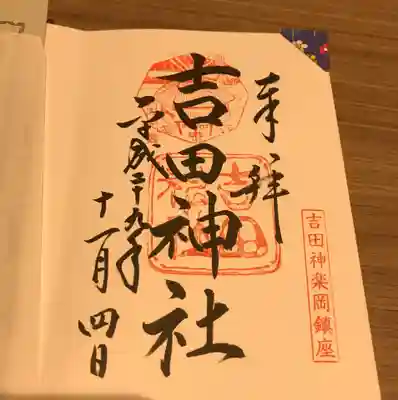 奉拝
吉田神社
平成二十九年
十一月四日
吉田神楽岡鎮座